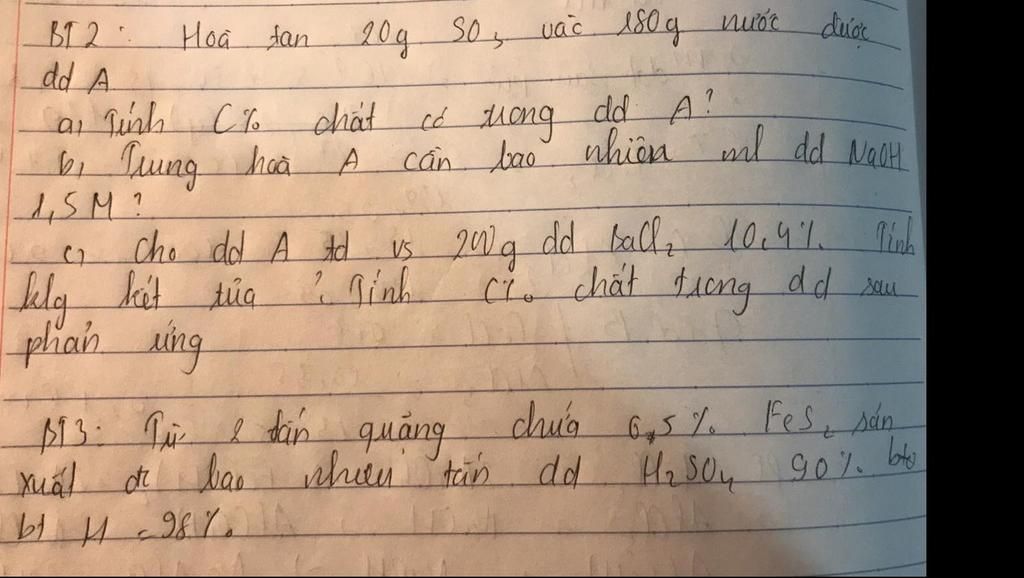 BT2: Hoà tan 20g SO3 vào 180g nước được
dd A
a, Tính C% chất có trong dd A?
b, Trung hoà A cần bao nhiên ml dd NaOH
1,5M?
c, Cho dd A td vs 200g dd BaCl2 10,4%. Tính
klg kết tủa? Tính C% chất trong dd sau
phản ứng
BT3: Từ 2 tấn quặng chứa 6,5% FeS2 sản
xuất đc bao nhieu tấn dd H2SO4 90%
bt H = 98%.